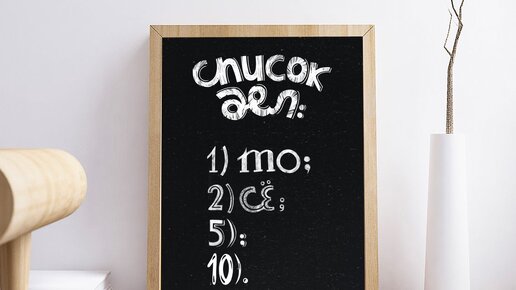 список
дел:
1) то;
2) сё;
5);
10).